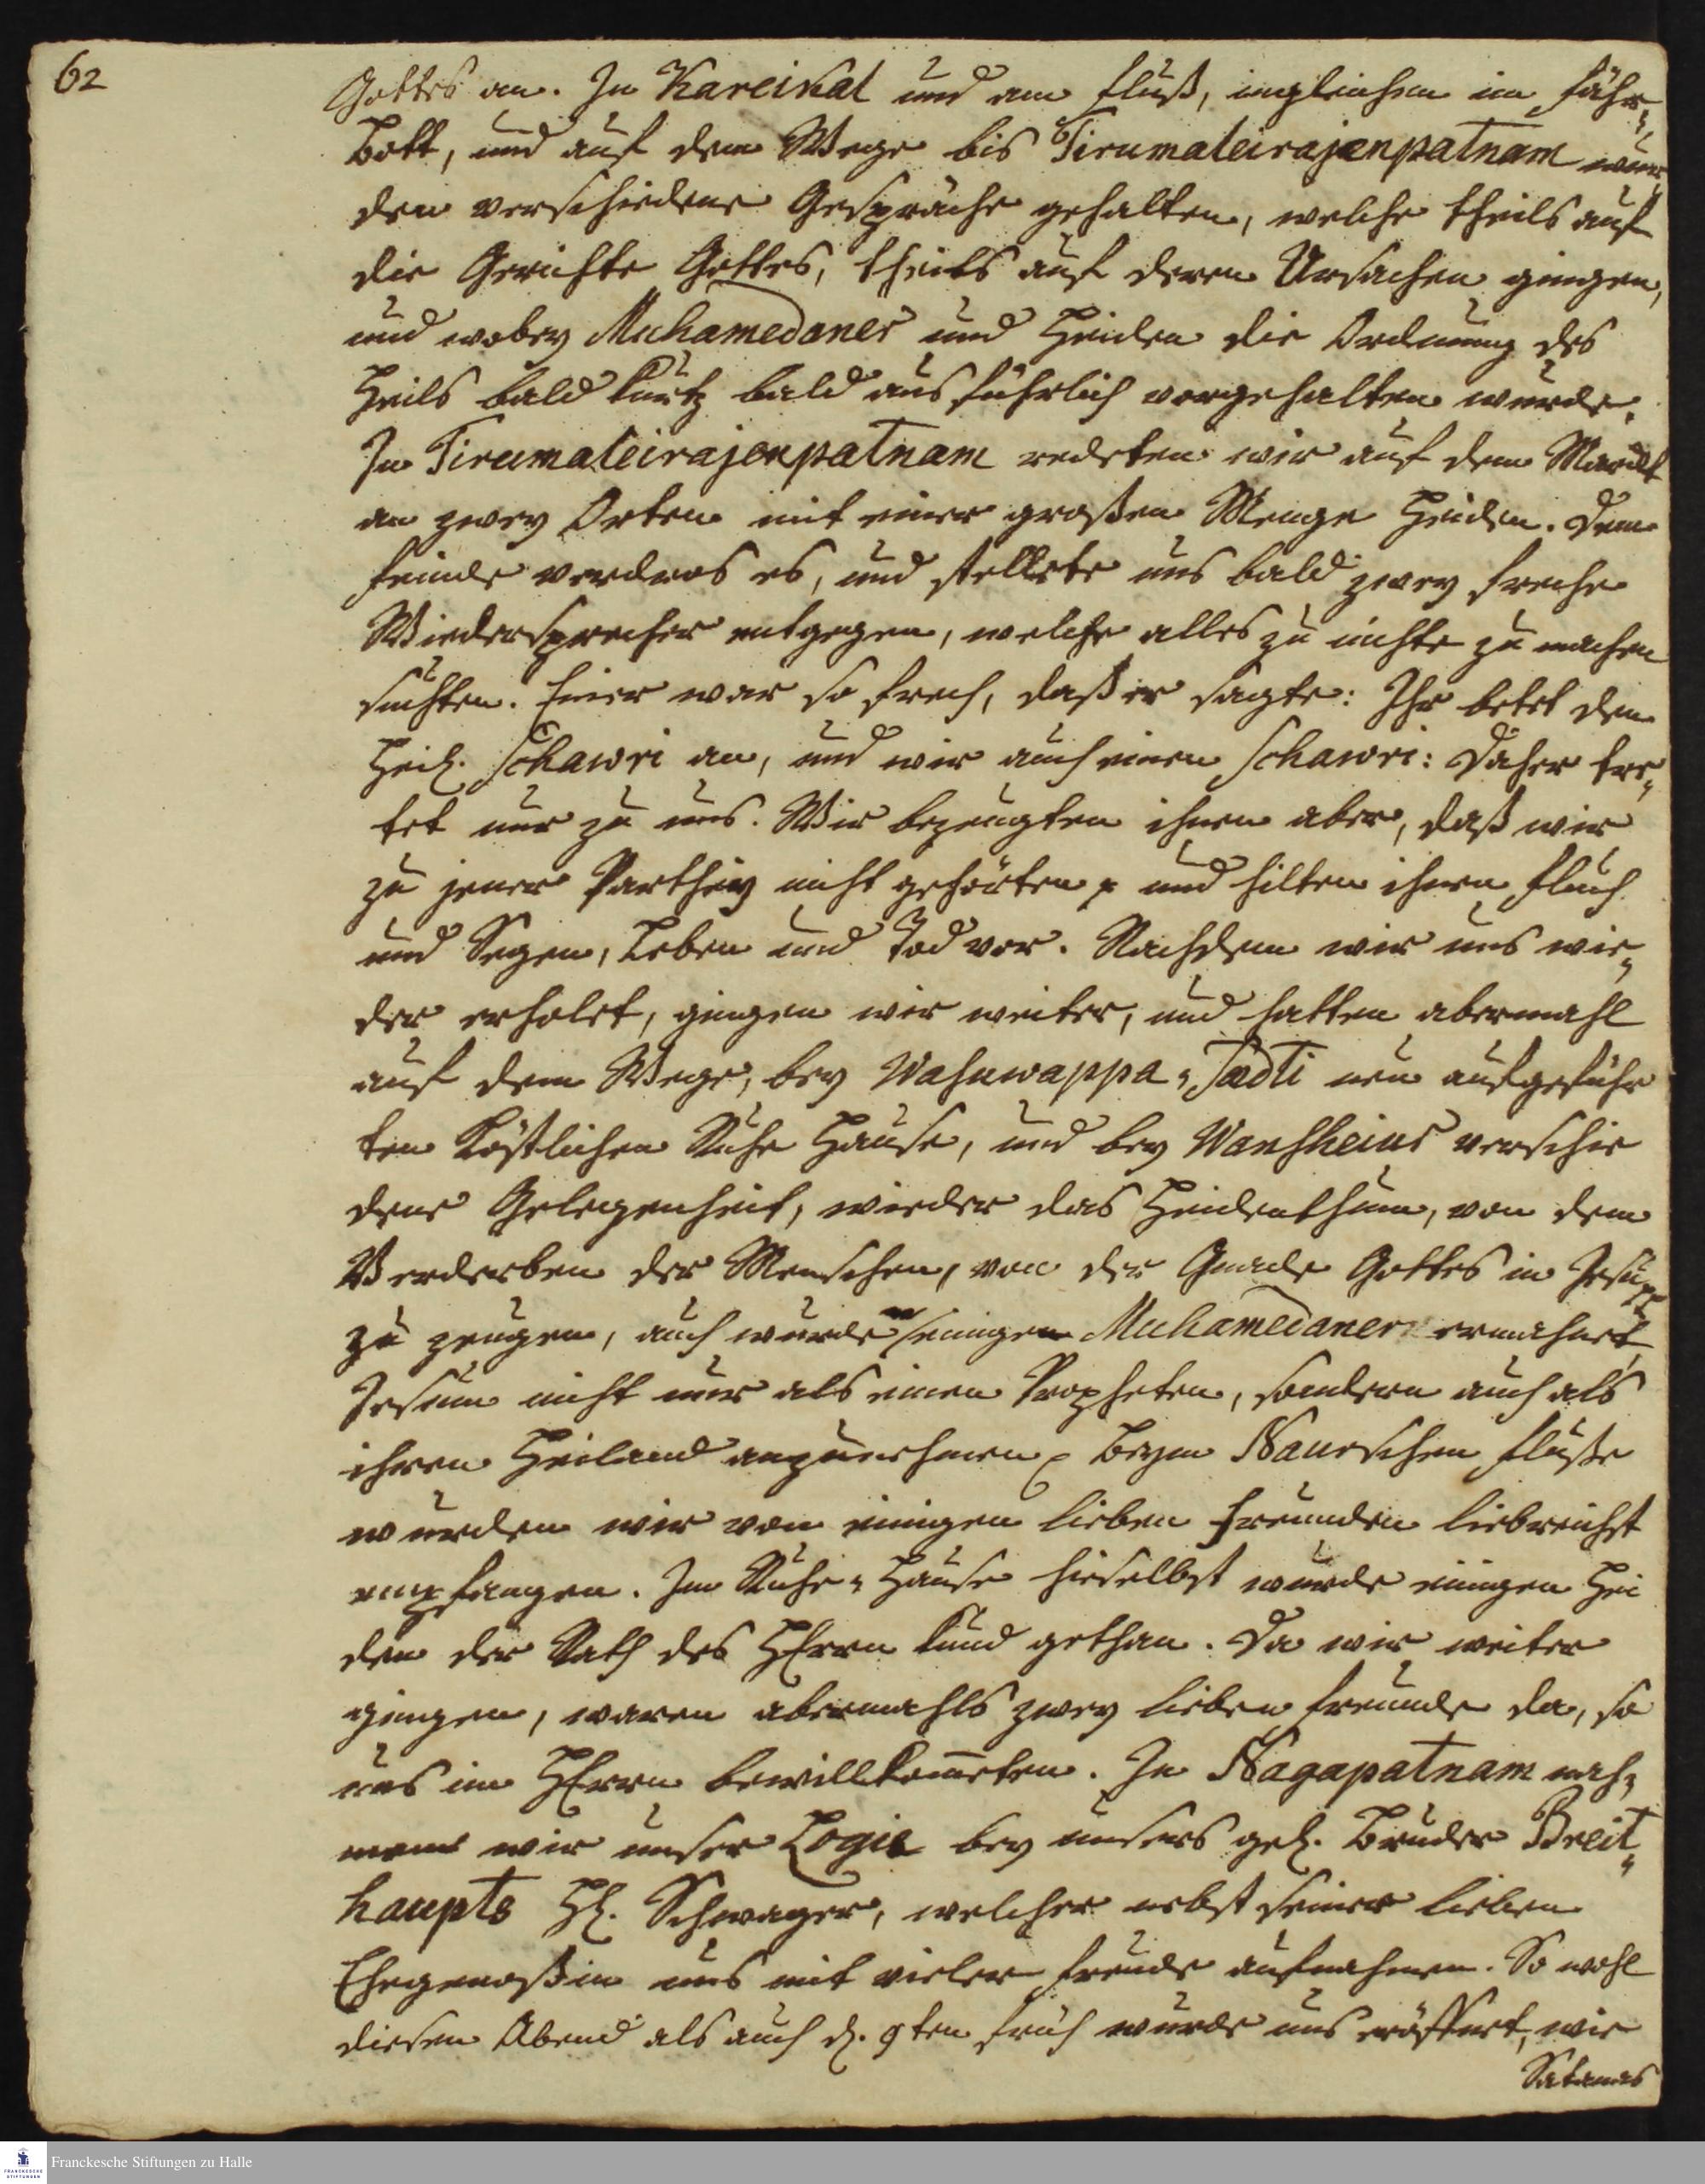 62
Gottes an. In Kareikal und am Fluß, ingleichen im Fähr„
Bott, und auf dem Wege bis Tirumaleirajenpatnam wur„
den verschiedene Gespräche gehalten, welche theils auf
die Gerichte Gottes, theils auf deren Ursachen gingen,
und wobey Muhamedaner und Heiden die Ordnung des
Heils bald kurtz bald ausführlich vorgehalten wurde.
In Tirumaleirajenpatnam redeten wir auf dem Marckt
an zwey Orten mit einer großen Menge Heiden. Dem
Feinde verdros es, und stellete uns bald zwey freche
Wiedersprecher entgegen, welche alles zu nichte zu machen
suchten. Einer war so frech, daß er sagte: Ihr betet den
Heil. Schawri an, und wir auch einen Schawri: Daher tre„
tet nur zu uns. Wir bezeugten ihnen aber, daß wir
zu jener Parthey nicht gehörten und hilten ihnen Fluch
und Segen, Leben und Tod vor. Nachdem wir uns wie„
der erholet, gingen wir weiter, und hatten abermahl
auf dem Wege, bey Wasuwappa„Tædti neu aufgeführ
ten köstlichen Ruhe Hause, und bey Wansheiur verschie
dene Gelegenheit, wieder das Heidenthum, von dem
Verderben der Menschen, von der Gnade Gottes in Jesu
zu zeugen, auch wurde einigen Muhamedaner ermahnet,
Jesum nicht nur als einen Propheten, sondern auch als
ihren Heiland anzunehmen Beym Naurschen Fluße
wurden wir von einigen lieben Freunden liebreichst
empfangen. Im Ruhe„Hause hieselbst wurde einigen Hei
den der Rath des HErrn kund gethan. Da wir weiter
gingen, waren abermahls zwey lieben Freunde da, so
uns im HErrn bewillkom̅eten. In Nagapatnam nah„
men wir unser Logie bey unsers gel. Bruder Breit„
haupts H. Schwager, welcher nebst seiner lieben
Ehegenoßin uns mit vieler Freude aufnahmen. So wohl
diesen Abend als auch d. 9ten früh wurde uns eröffnet, wie
Satanas
Franckesche Stiftungen zu Halle
FRANCKESCHE STIFTUNGEN